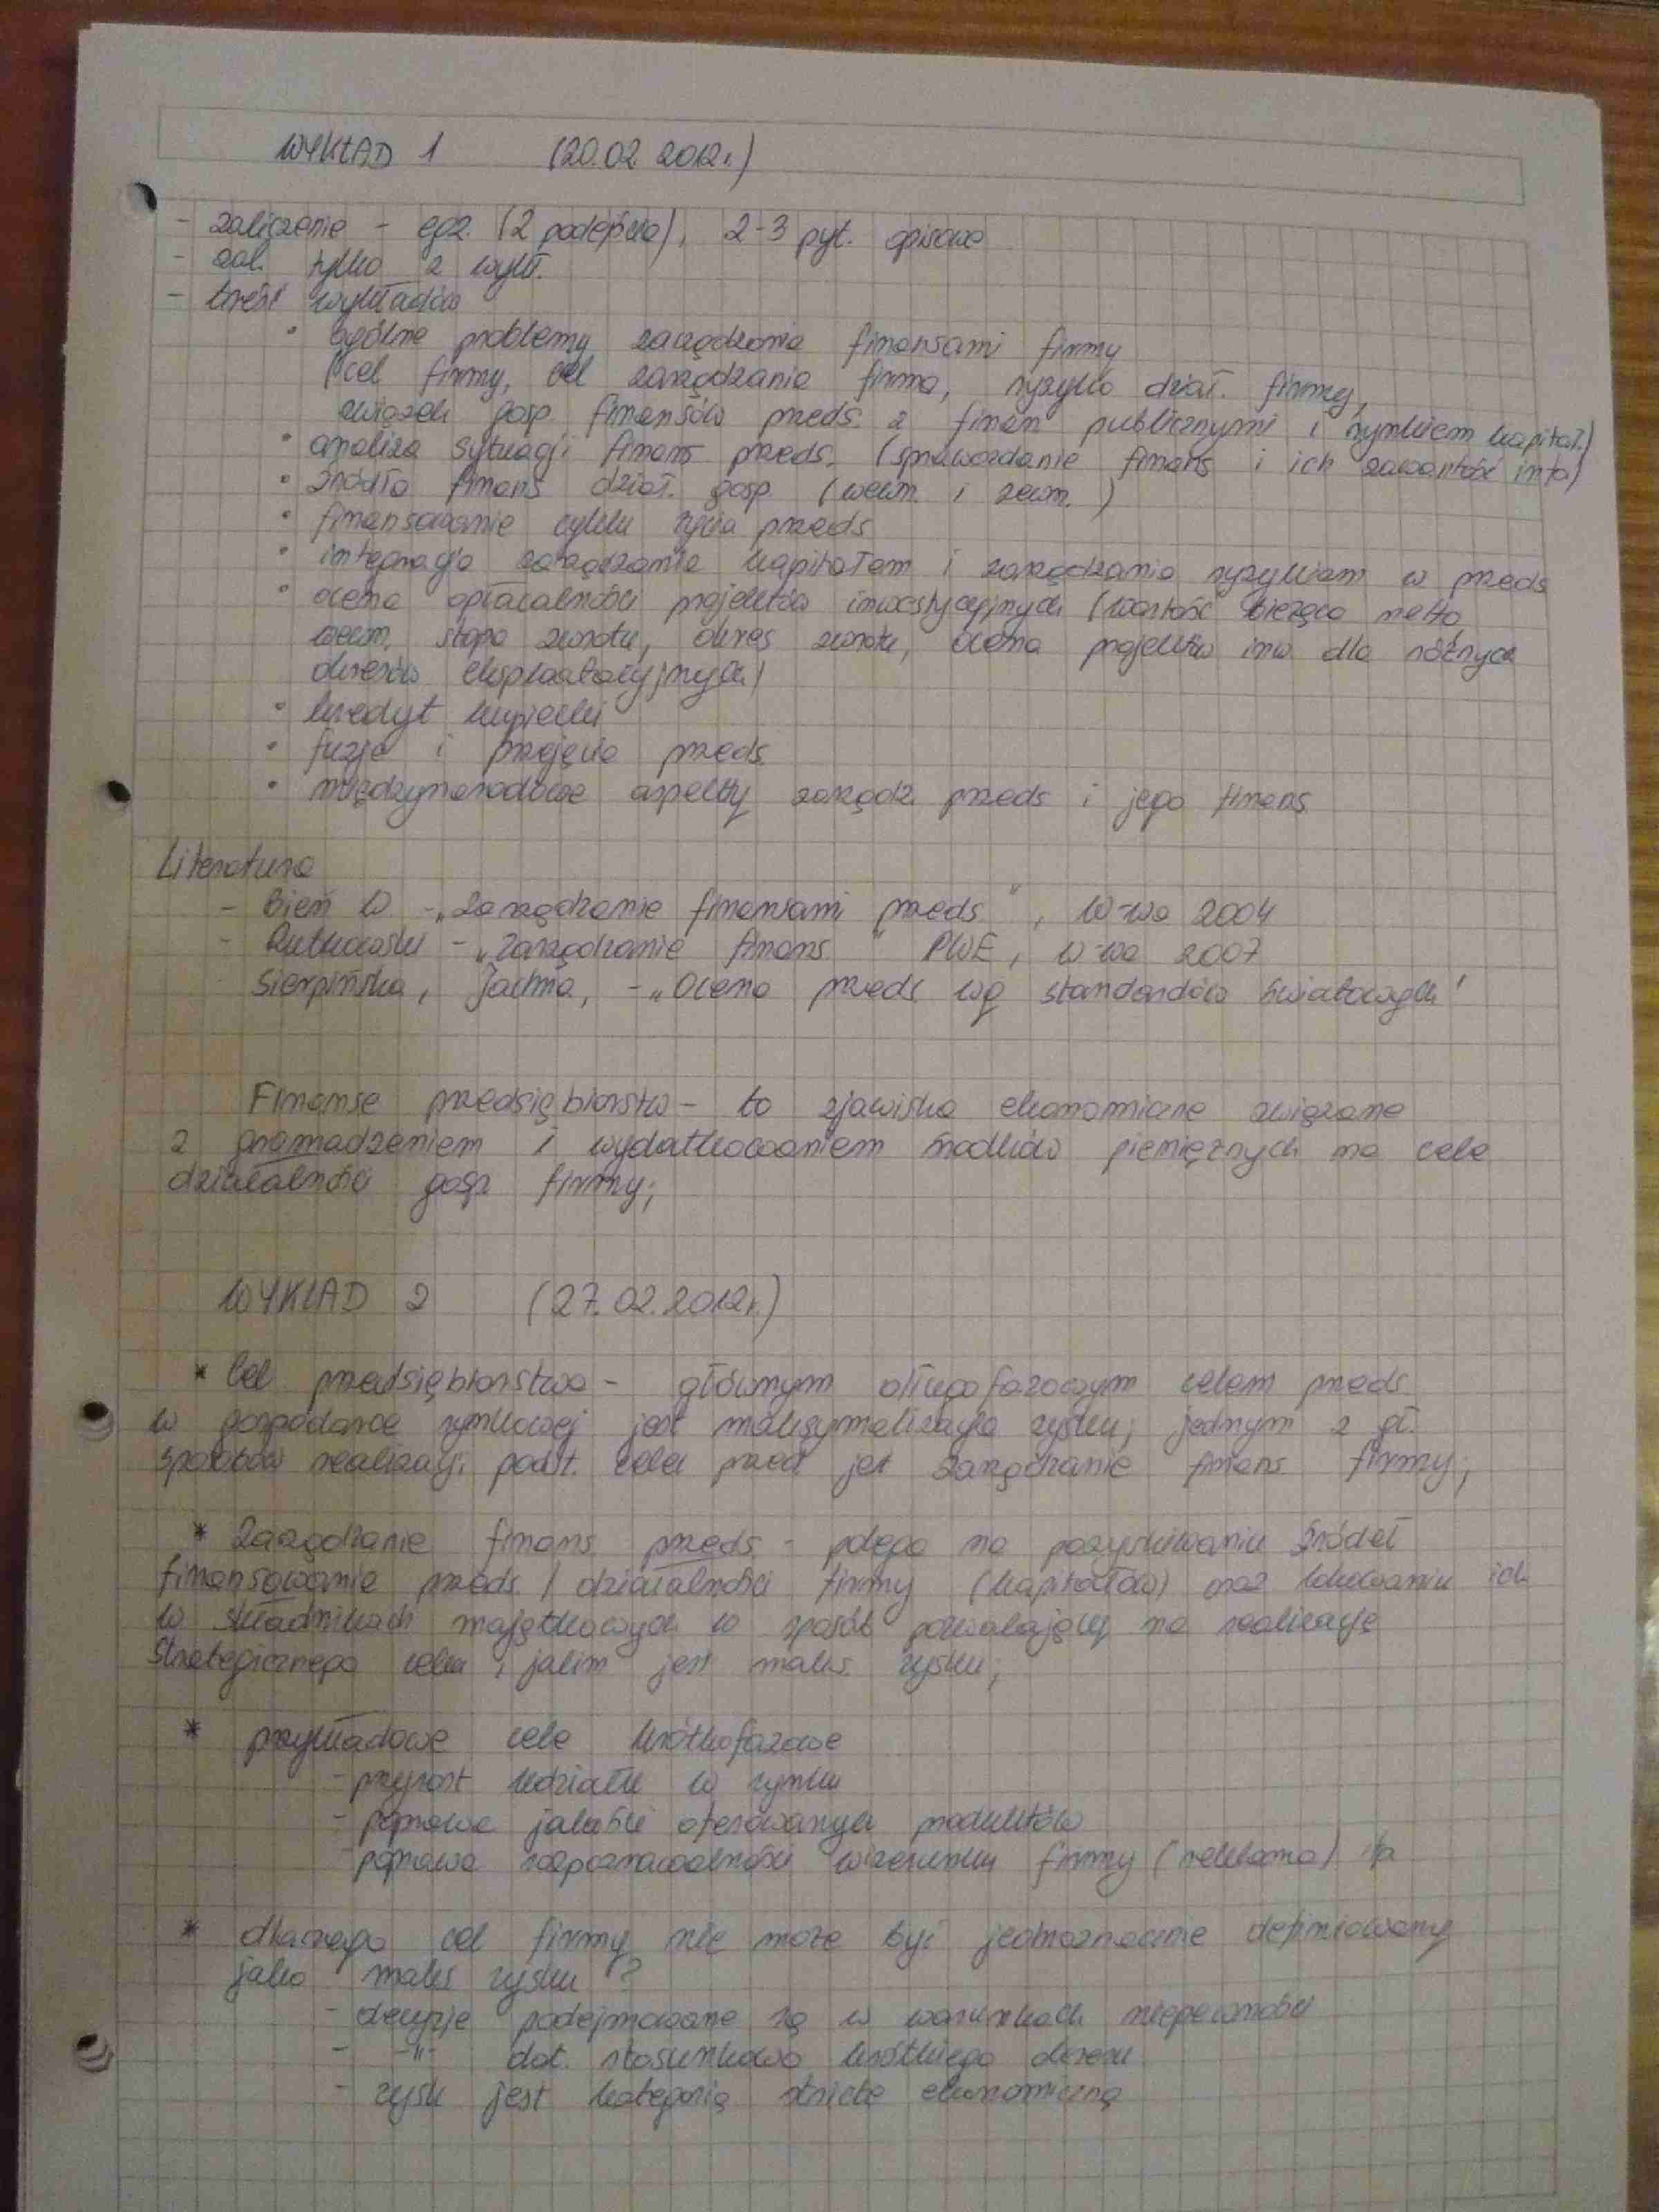 WYKŁAD 1 (20.02.2012r.)
- zaliczenie - egz. (2 podejścia), 2-3 pyt. opisowe
- zal. tylko z wykł.
- treść wykładów
• ogólne problemy zarządzania finansami firmy
(cel firmy, cel zarządzania firmą, ryzyko dział. firmy,
związek gosp. finansów przeds. z finan publicznymi i rynkiem kapitał.)
• analiza sytuacji finans przeds. (sprawozdanie finans i ich zawartość info)
• źródła finans dział. gosp. (wewn. i zewn.)
• finansowanie cyklu życia przeds
• integracja zarządzania kapitałem i zarządzania ryzykiem w przeds
• ocena opłacalności projektów inwestycyjnych (wartość bieżąca netto,
wewn. stopa zwrotu, okres zwrotu, ocena projektów inw. dla różnych
okresów eksploatacyjnych)
• kredyt kupiecki
• fuzje i przejęcia przeds.
• międzynarodowe aspekty zarządz. przeds i jego finans
Literatura
- Bień W - „Zarządzanie finansami przeds.", W-wa 2004
- Rutkowski - „Zarządzanie finans." PWE, W-wa 2007
Sierpińska, Jachna, - „Ocena przeds wg standardów światowych"
Finanse przedsiębiorstw - to zjawiska ekonomiczne związane
z gromadzeniem i wydatkowaniem środków pieniężnych na cele
działalności gosp firmy;
WYKŁAD 2 (27.02.2012r.)
* Cel przedsiębiorstwa - głównym długofazowym celem przeds.
w gospodarce rynkowej jest maksymalizacja zysku; jednym z gł.
sposobów realizacji podst. celu przed jest zarządzanie finans firmy;
* Zarządzanie finans. przeds. - polega na pozyskiwaniu źródeł
finansowania przeds. / działalności firmy (kapitałów) oraz lokowaniu ich
w składnikach majątkowych w sposób pozwalający na realizację
strategicznego celu, jakim jest maks. zysku;
* przykładowe cele krótkofazowe
- przyrost udziału w rynku
- poprawa jakości oferowanych produktów
- poprawa rozpoznawalności wizerunku firmy (reklama) itp
* dlaczego cel firmy nie może być jednoznacznie definiowany
jako maks zysku?
- decyzje podejmowane są w warunkach niepewności
- -"- dot. stosunkowo krótkiego okresu
- zysk jest kategorią stricte ekonomiczną